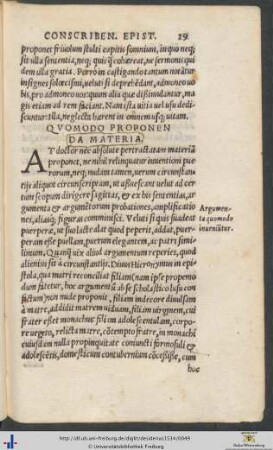 CONSCRIBEN. EPIST. 29
proponet friuolum stulti capitis somnium, in quo neq;
sit ulla sententia, neq; quę cohæreat, ne sermoni qui
dem ulla gratia. Porro in castigando tantum notatur
insignes solœcismi, ueluti si deprehēdant, admoneo uo
bis, pro admoneo uos: quum alia quę dissimulantur, ma
gis etiam ad rem faciant. Nam ista uitia uel usu dedi
scuntur: Illa, neglecta hærent in omnem usq; uitam.
QVOMODO PROPONEN
DA MATERIA.
AT doctor nec absolute pertractatam materiā
proponet, ne nihil relinquatur inuentioni pue
rorum, neq; nudam tamen, uerum circumstan
tijs aliquot circunscriptam, ut assuescant uelut ad cer
tum scopum dirigere sagittas, & ex his sententias, ar
gumenta & argumētorum probationes, amplificatio
nes, aliasq; figuras comminisci. Veluti si quis suadeat
puerpere, ut suo lacte alat quod peperit, addat, puer
peram esse puellam, puerum elegantem, ac patri simil
limum. Quanq̃ uix aliud argumentum reperies, quod
alienū sit à circunstantijs. Diuus Hieronymus in epi
stola, qua matri reconciliat filiam (nam ipse propemo
dum fatetur, hoc argumentū ab se scholastico lusu con
fictum) non nude proponit, filiam indecore diuulsam
à matre, addidit matrem uiduam, filiam uirginem, cui
frater esset monachus: filiam adolescentulam, corpo
re uegeto, relicta matre, cōtempto fratre, in monachi
cuiusdam nulla propinquitate coniuncti formosuli &
adolescētis, domesticum contubernium cōcessisse, cum
hoc
Argumen-
ta quomodo
inueniātur.
http://dl.ub.uni-freiburg.de/diglit/desiderius1534/0049
© Universitätsbibliothek Freiburg